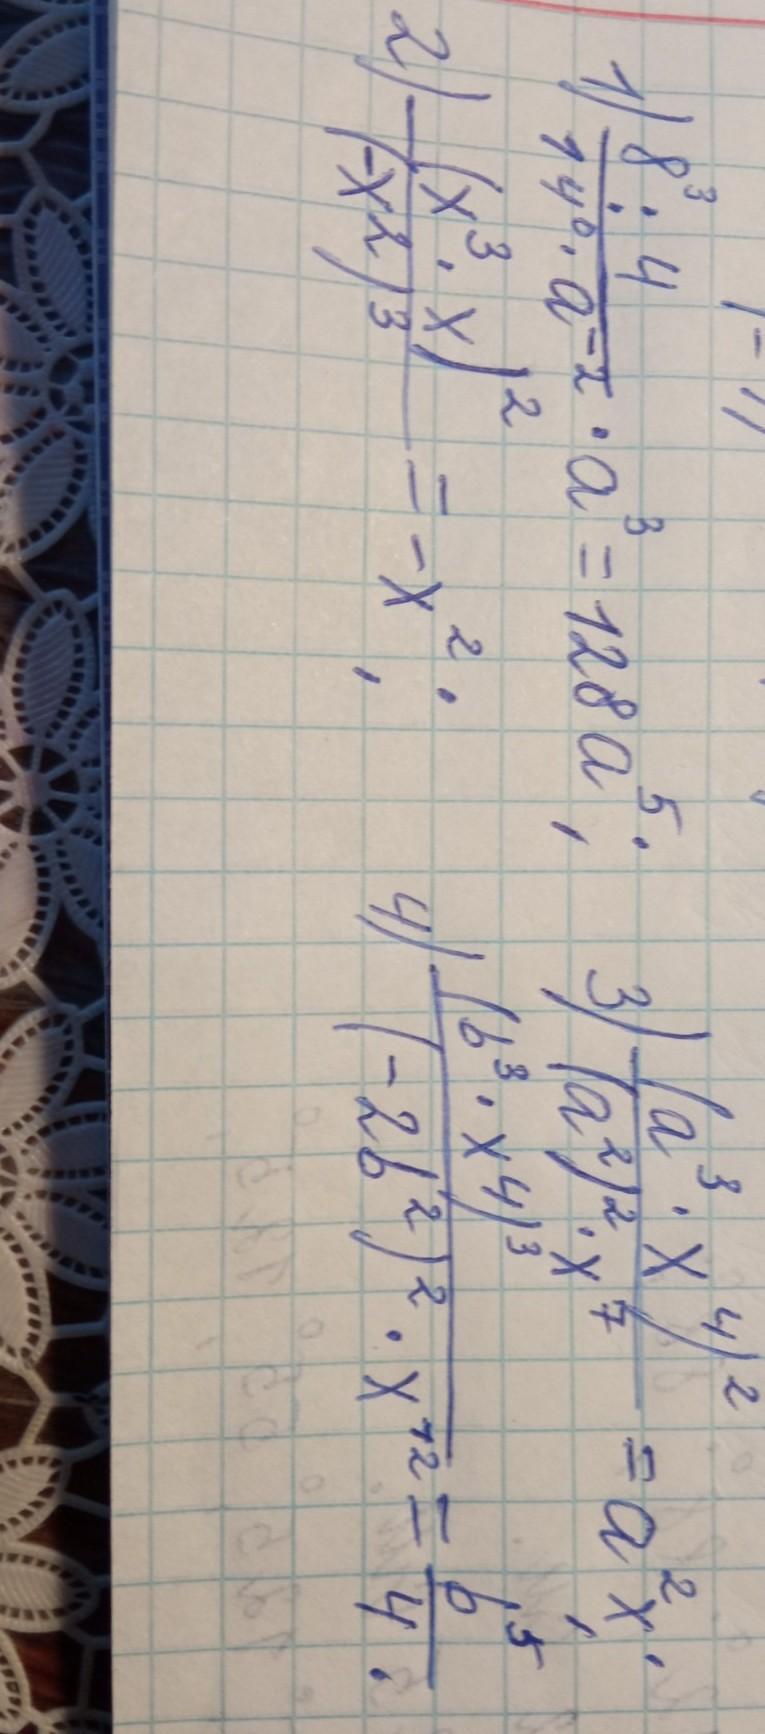 1) (8³ : 4)/(14⁰ · a⁻²) · a³ = 128a⁵;
2) (x³ · x)²/(-x²)³ = -x²;
3) (a³ · x⁴)²/((a²)² · x⁷) = a²x;
4) (b³ · x⁴)³/((-2b²)² · x¹²) = b⁵/4.